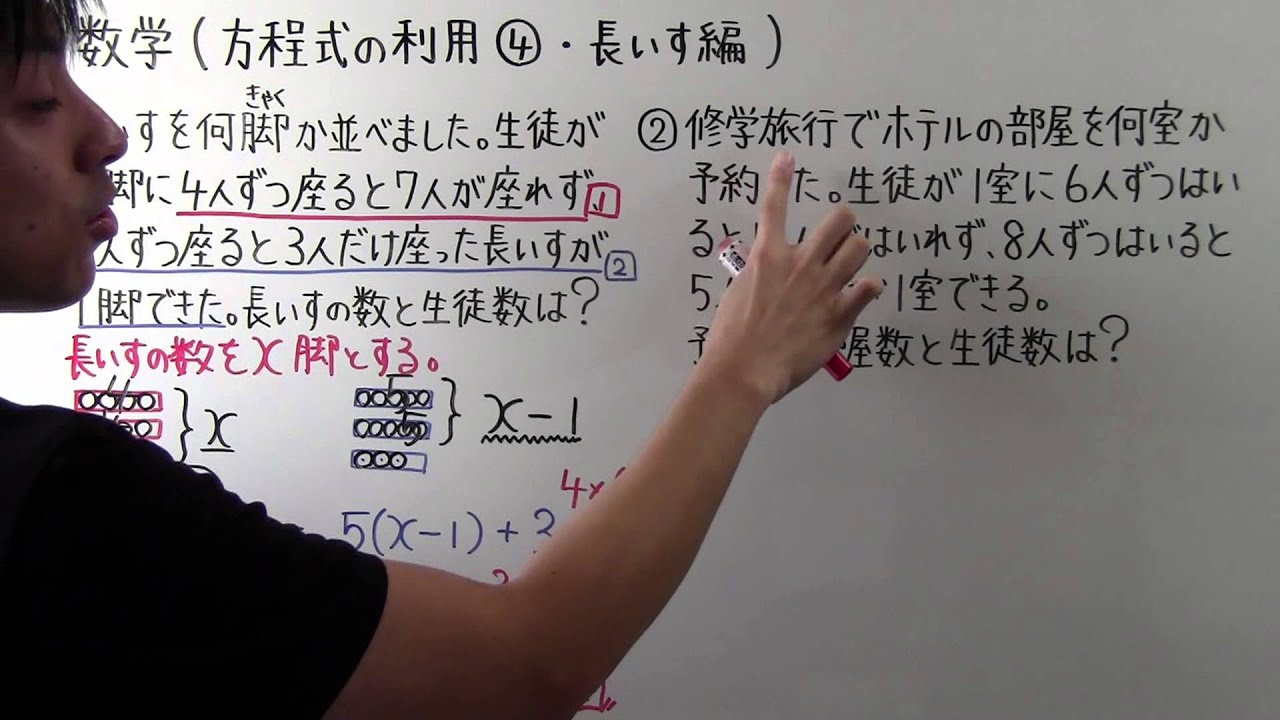 数学(方程式の利用④・長いす編)
きゃく
すを何脚か並べました。生徒が
脚に4人ずつ座ると7人が座れず、1
人ずつ座ると3人だけ座った長いすが2
1脚できた。長いすの数と生徒数は?
長いすの数をx脚とする。
4
5
5
x
x-1
4×
5(x-1)+3
②修学旅行でホテルの部屋を何室か
予約 た。生徒が1室に6人ずつはい
ると はいれず、8人ずつはいると
5 1室できる。
予 屋数と生徒数は?